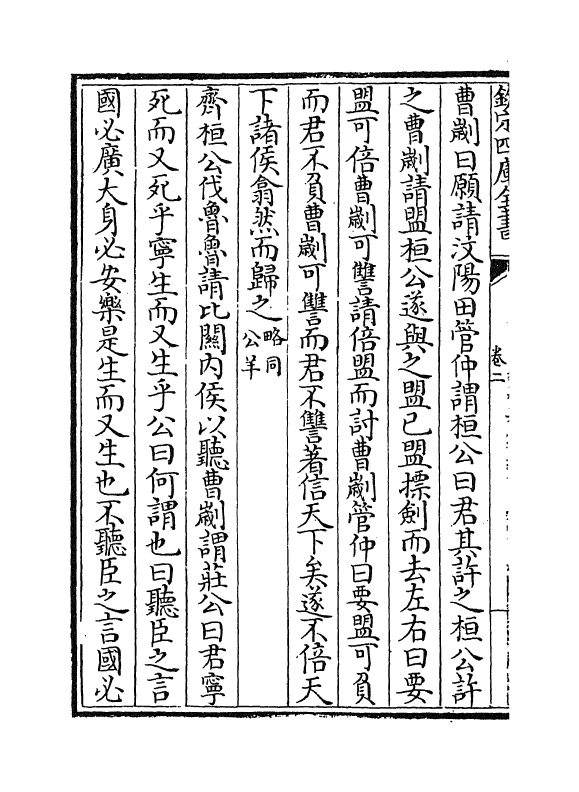 欽定四庫全書
卷二
曹劌曰願請汶陽田管仲謂桓公曰君其許之桓公許
之曹劌請盟桓公遂與之盟已盟摽劍而去左右曰要
盟可倍曹劌可讐請倍盟而討曹劌管仲曰要盟可負
而君不負曹劌可讐而君不讐著信天下矣遂不倍天
下諸侯翕然而歸之略同公羊
齊桓公伐魯魯請比關內侯以聽曹劌謂莊公曰君寧
死而又死乎寧生而又生乎公曰何謂也曰聽臣之言
國必廣大身必安樂是生而又生也不聽臣之言國必